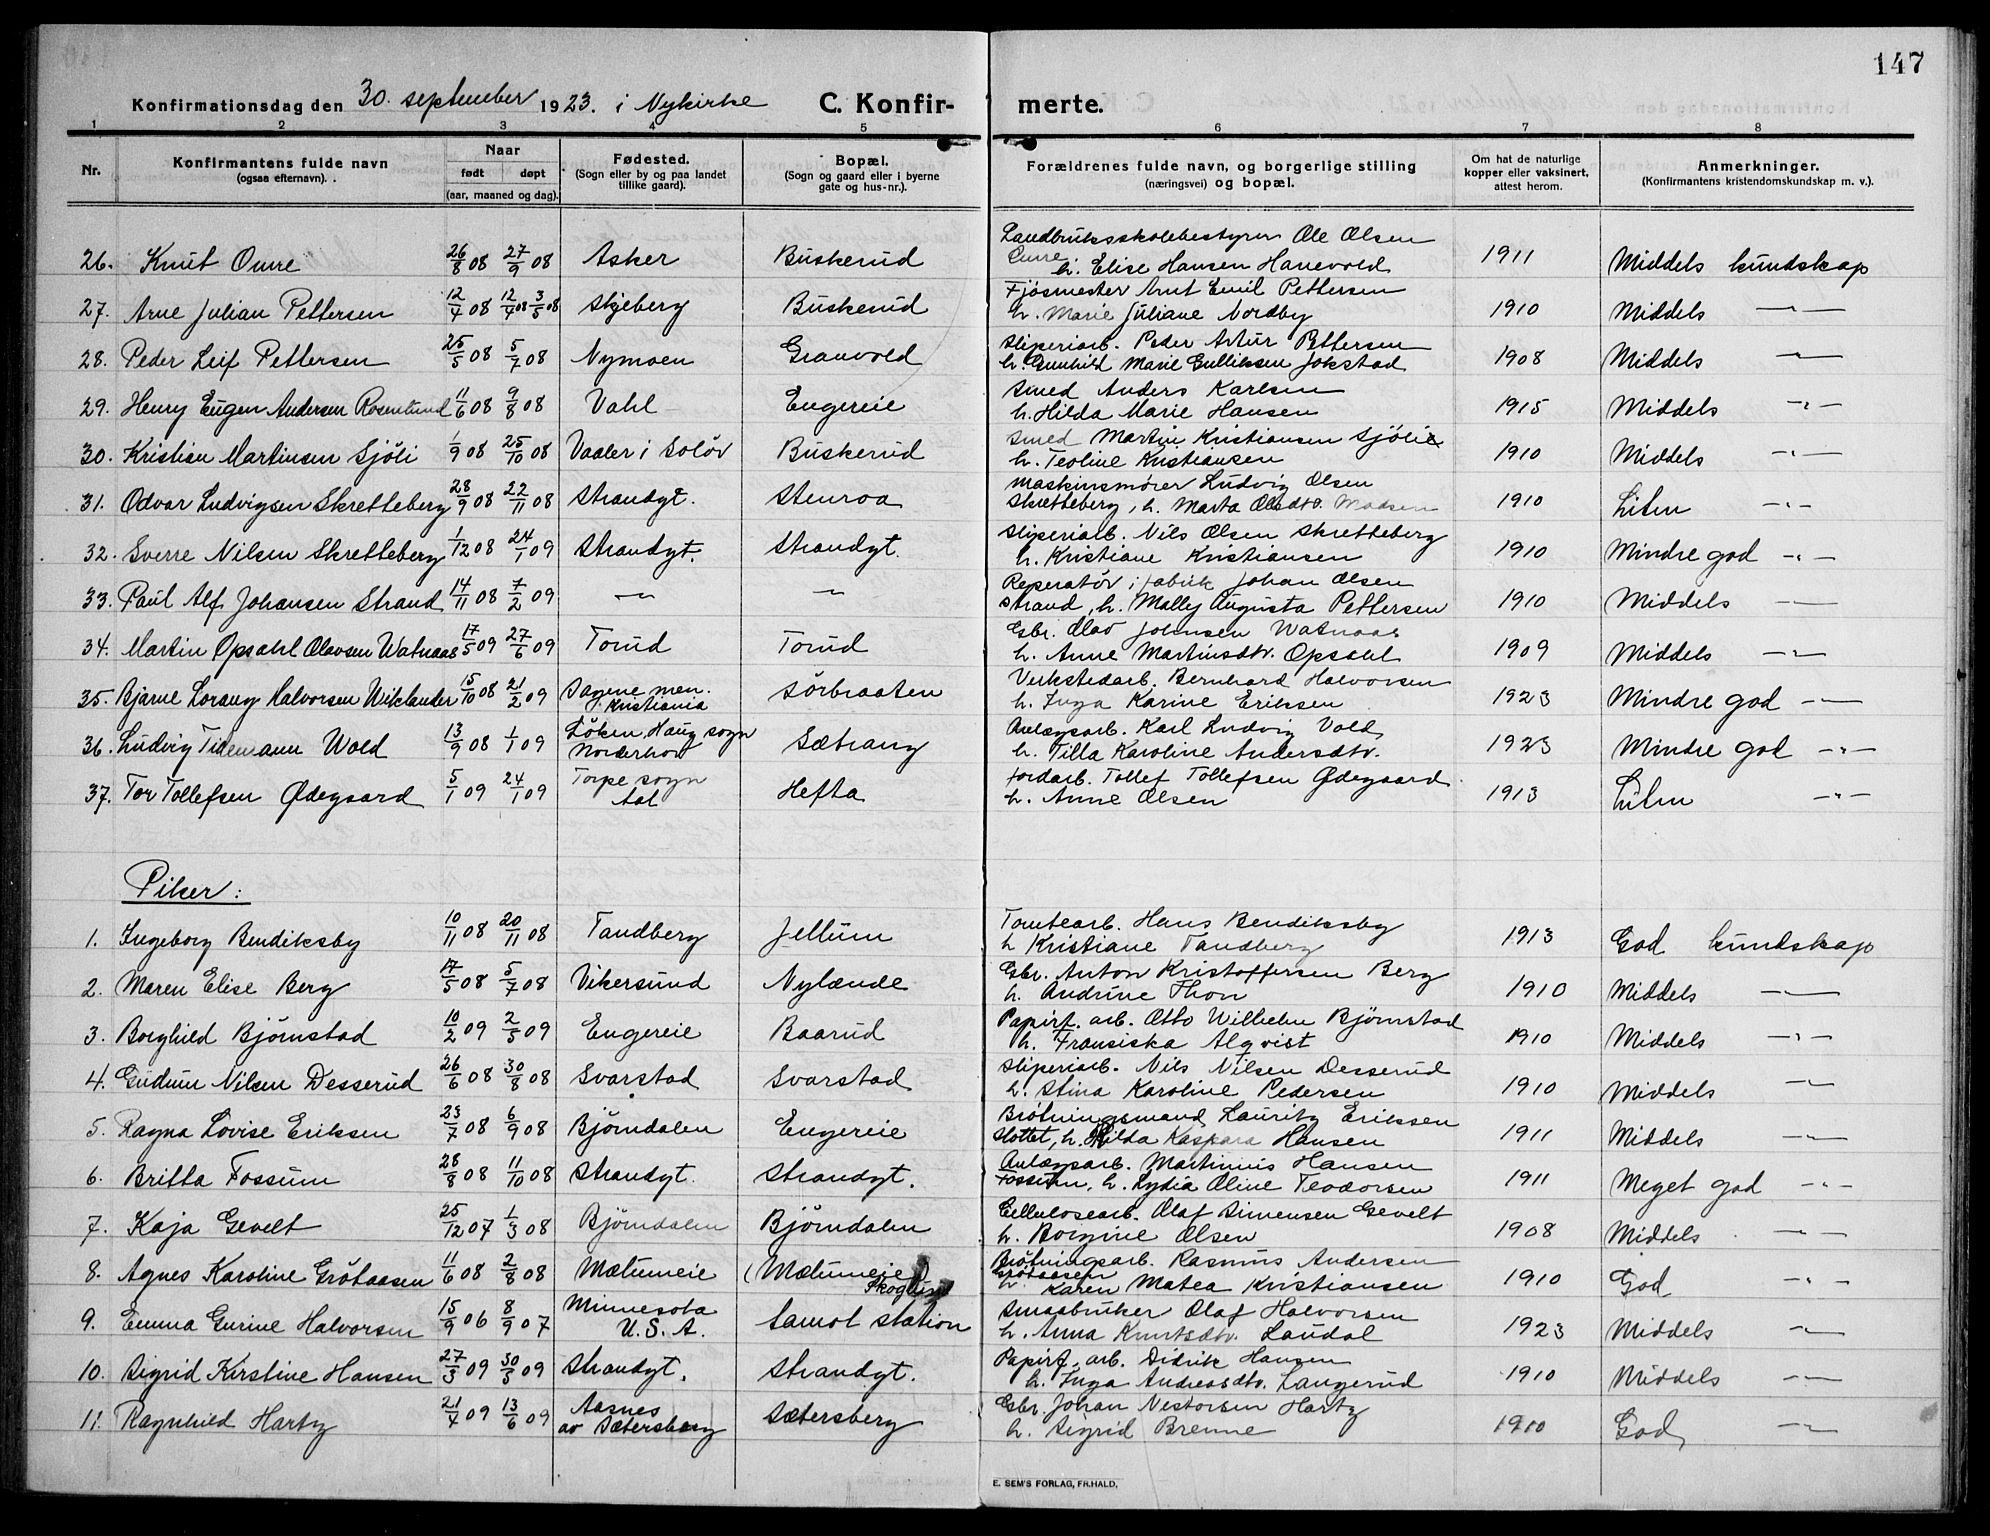 147
Konfirmationsdag den 30. september 1923. i Nykirke C. Konfir- merte.
1 2 3 4 5 6 7 8
Nr. Konfirmantens fulde navn (ogsaa efternavn). Naar født døpt (aar, maaned og dag). Fødested. (Sogn eller by og paa landet tillike gaard). Bopæl. (Sogn og gaard eller i byerne gate og hus-nr.). Forældrenes fulde navn, og borgerlige stilling (næringsvei) og bopæl. Om hat de naturlige kopper eller vaksinert, attest herom. Anmerkninger. (Konfirmantens kristendomskundskap m. v.).
Landbruksskolebestyrer Ole Olsen
26. Knut Omre 26/8 08 27/9 08 Asker Buskerud Omre h. Elise Hansen Hanevold 1911 Middels kundskap
Fjøsmester Arnt Emil Pettersen
27. Arne Julian Pettersen 12/4 08 12/4 08 3/5 08 Skjeberg Buskerud h. Marie Juliane Nordby 1910 Middels —"—
Sliperiarb. Peder Artur Pettersen
28. Peder Leif Pettersen 25/5 08 5/7 08 Nymoen Granvold h. Gunhild Marie Gulliksen Jokstad 1908 Middels —"—
Smed Anders Karlsen
29. Henry Eugen Andersen Rosenlund 11/6 08 9/8 08 Vahl Engereie h. Hilda Marie Hansen 1915 Middels —"—
Smed Martin Kristiansen Sjölie
30. Kristian Martinsen Sjöli 1/9 08 25/10 08 Vaaler i Solör Buskerud h. Teoline Kristiansen 1910 Middels —"—
Maskinsmörer Ludvig Olsen
31. Odvar Ludvigsen Skretteberg 28/9 08 22/11 08 Strandgt. Stenroa Skretteberg, h. Marta Olsdtr. Moosen 1910 Liten —"—
Sliperiarb. Nils Olsen Skretteberg
32. Sverre Nilsen Skretteberg 1/12 08 24/1 09 Strandgt. Strandgt. h. Kristiane Kristiansen 1910 Mindre god —"—
Reperatör i fabrik Johan Olsen
33. Paul Alf Johansen Strand 14/11 08 7/2 09 —"— —"— Strand, h. Molly Augusta Pettersen 1910 Middels —"—
Gbr. Olav Johnsen Watnaas
34. Martin Opsahl Olavsen Watnaas 17/5 09 27/6 09 Torud Torud h. Anne Martinsdtr. Opsahl 1909 Middels —"—
Verkstedarb. Bernhard Halvorsen
35. Bjarne Lorang Halvorsen Wiklander 15/10 08 21/2 09 Sagene men. Kristiania Sörbraaten h. Inga Karine Eriksen 1923 Mindre god —"—
Anlægsarb. Karl Ludvig Vold
36. Ludvig Tidemann Wold 13/9 08 1/1 09 Löken, Haug sogn Norderhov Sætrang h. Tilla Karoline Andersdtr. 1923 Mindre god —"—
Jordarb. Tollef Tollefsen Ødegaard
37. Tor Tollefsen Ødegaard 5/1 09 24/1 09 Torpe sogn Aal Hefta h. Anne Olsen 1913 Liten —"—
Piker:
Tomtearb. Hans Bendiksby
1. Ingeborg Bendiksby 10/11 08 20/11 08 Tandberg Jellum h Kristiane Tandberg 1913 God kundskap
Gbr. Anton Kristoffersen Berg
2. Maren Elise Berg 17/5 08 5/7 08 Vikersund Nylænde h. Andrine Thon 1910 Middels —"—
Papirf. arb. Otto Wilhelm Björnstad
3. Borghild Björnstad 10/2 09 2/5 09 Engereie Baarud h. Fransiska Alqvist 1910 Middels —"—
Sliperiarb. Nils Nilsen Desserud
4. Gudrun Nilsen Desserud 26/6 08 30/8 08 Svarstad Svarstad h. Stina Karoline Pedersen 1910 Middels —"—
Brötningsmand Lauritz Erikssen
5. Ragna Lovise Eriksen 23/7 08 6/9 08 Björndalen Engereie Slottet, h. Hilda Kaspara Hansen 1911 Middels —"—
Anlægsarb. Martinius Hansen
6. Britta Fossum 28/8 08 11/10 08 Strandgt. Strandgt. Fossum, h. Lydia Oline Teodorsen 1911 Meget god —"—
Cellulosearb. Olaf Simensen Gevelt
7. Kaja Gevelt 25/12 07 1/3 08 Björndalen Björndalen h. Borgine Olsen 1908 Middels —"—
Brötningsarb. Rasmus Andersen
8. Agnes Karoline Grötaasen 11/6 08 2/8 08 Mælumeie (Mælumeie) Skoglund Grötaasen h. Karen Matea Kristiansen 1910 God —"—
Smaabruker Olaf Halvorsen
9. Emma Gurine Halvorsen 15/9 06 8/9 07 Minnesota U.S.A. Samot station h. Anna Knutsdtr. Laudal 1923 Middels —"—
Papirf. arb. Didrik Hansen
10. Sigrid Kirstine Hansen 27/3 09 30/5 09 Strandgt. Strandgt. h. Inga Andreasdtr. Langerud 1910 Middels —"—
Gbr. Johan Nestorsen Hartz
11. Ragnhild Hartz 21/4 09 13/6 09 Aasnes av Sætersberg Sætersberg h. Sigrid Brenne 1910 God —"—
E. SEM'S FORLAG, FR.HALD.